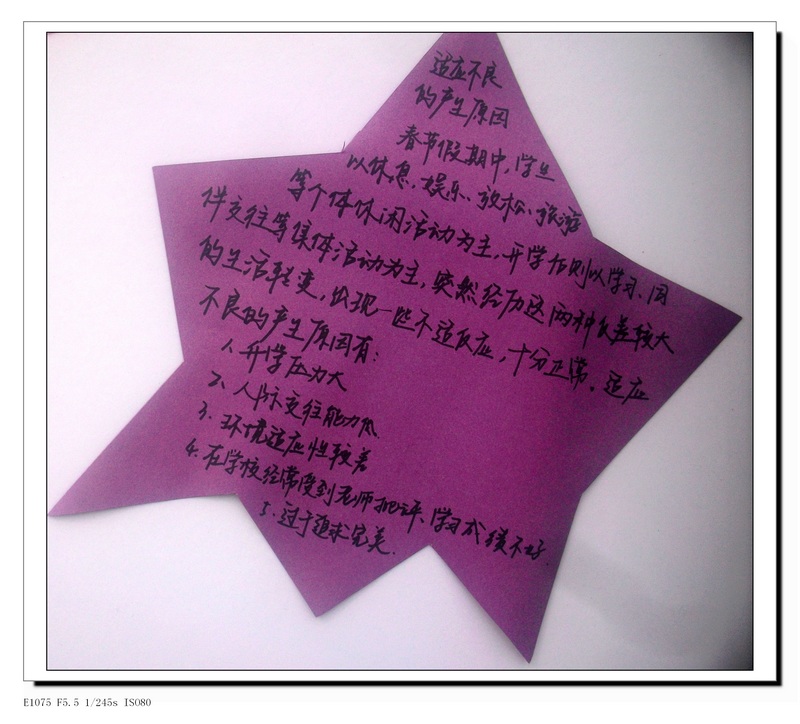 适应不良
的产生原因
春节假期中,学生
以休息、娱乐、放松、旅游
等个体休闲活动为主,开学后则以学习、同
伴交往等集体活动为主,突然经历这两种反差较大
的生活转变,出现一些不适反应,十分正常。适应
不良的产生原因有:
1、开学压力大
2、人际交往能力低
3、环境适应性较差
4、在学校经常受到老师批评、学习成绩不好.
5、过于追求完美.
E1075 F5.5 1/245s ISO80